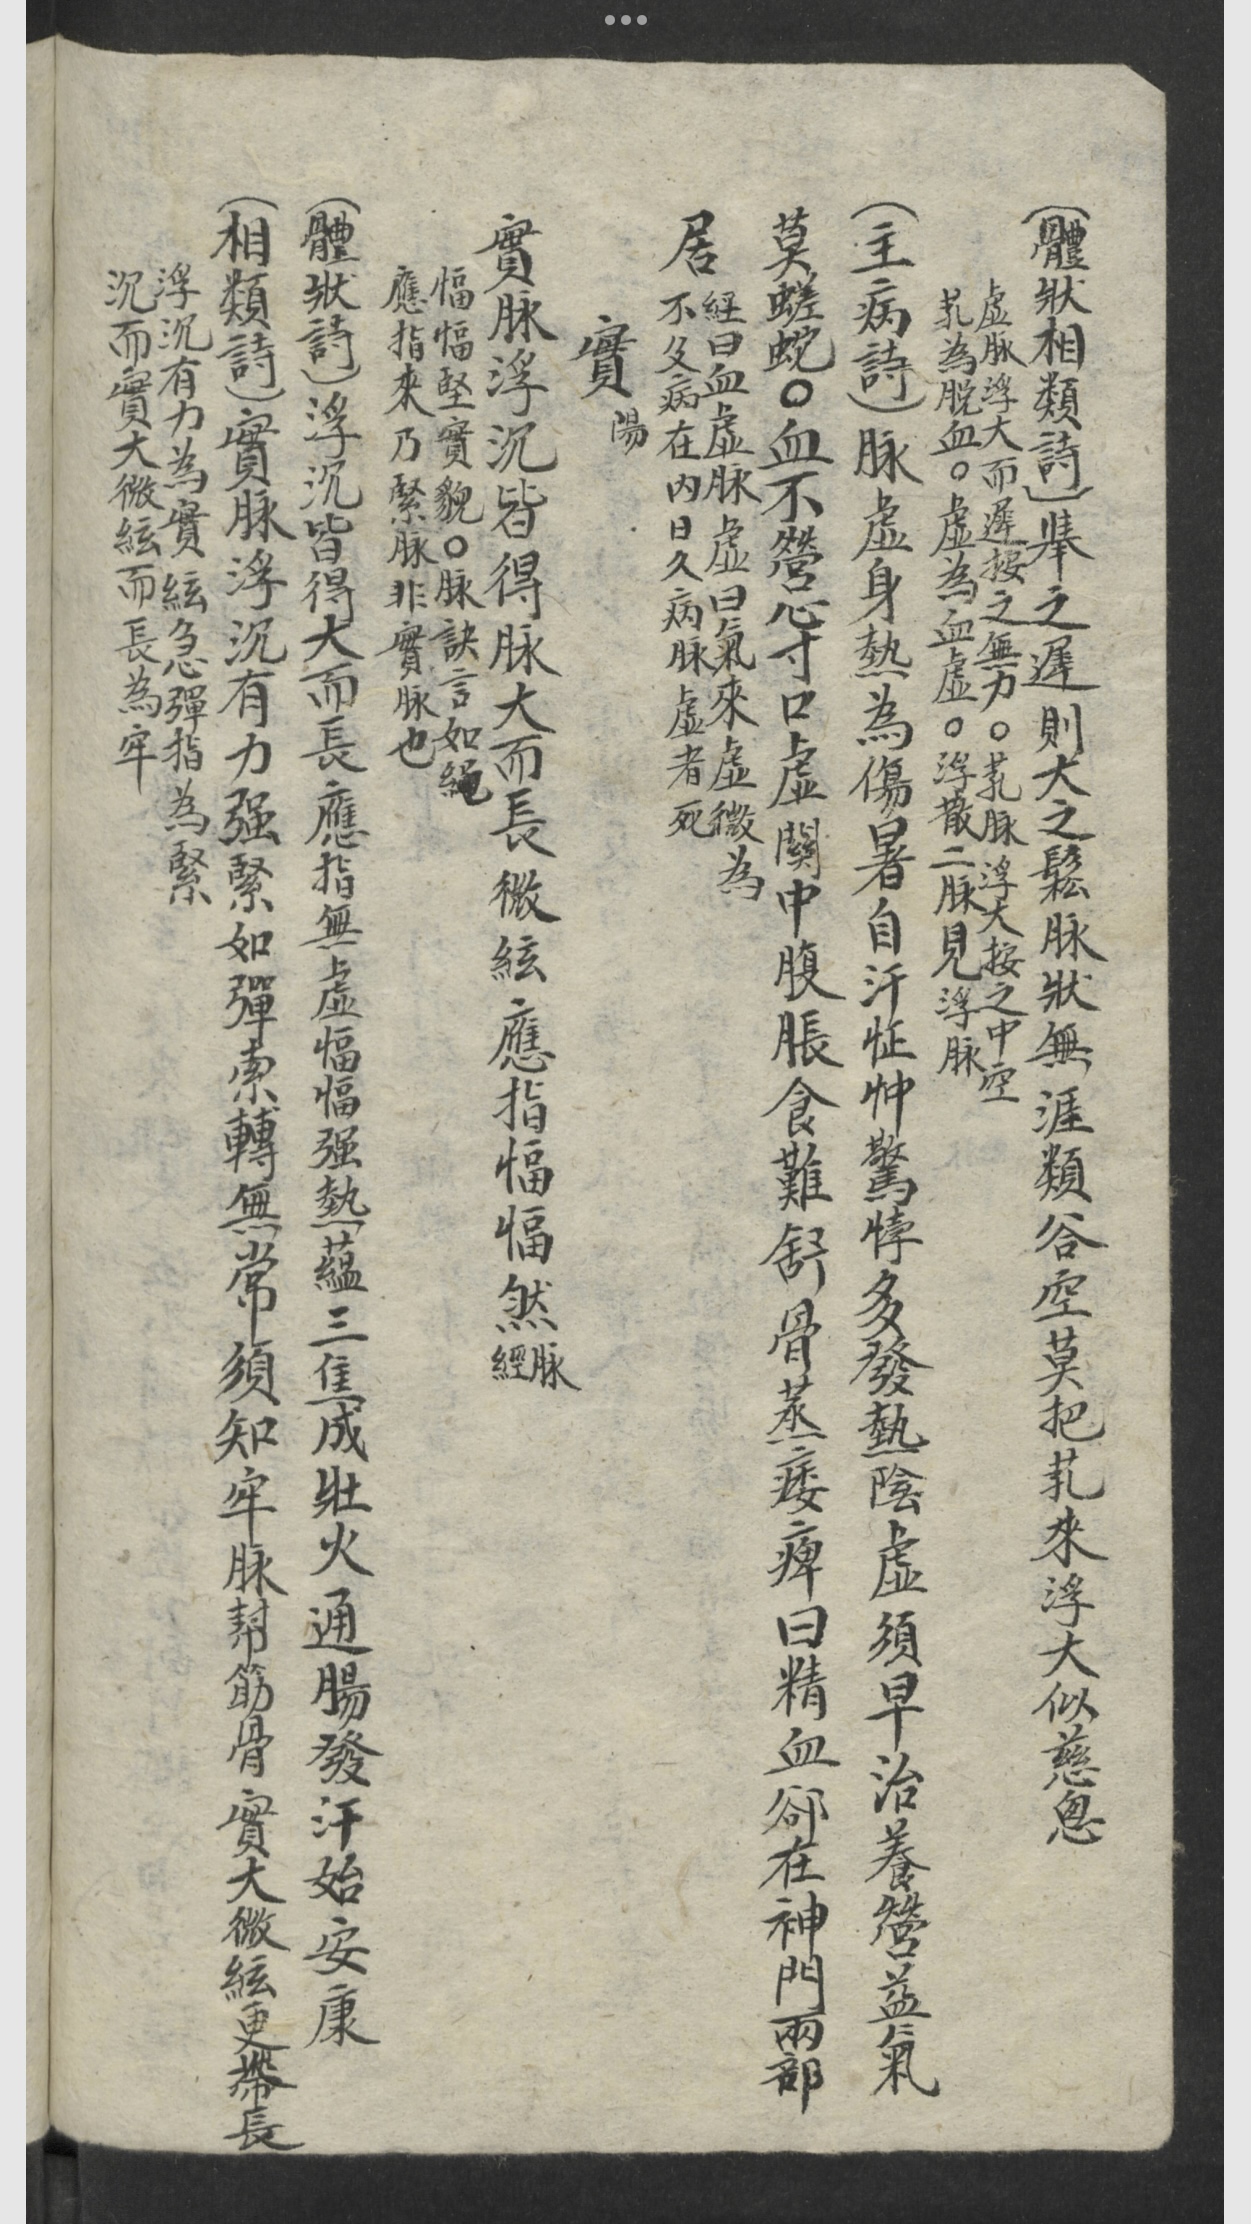 (體狀相類詩)舉之遲則大之鬆脉狀無涯類谷空莫把芤來浮大似慈恩
虛脉浮大而遲按之無力○芤脉浮大按之中空
芤為脫血○虛為血虛○浮散二脉見浮脉
(主病詩)脉虛身熱為傷暑自汗怔忡驚悸多發熱陰虛須早治養營益氣
莫蹉蛇○血不營心寸口虛關中腹脹食難舒骨蒸痿痺曰精血卻在神門兩部
居
経曰血虛脉虛曰氣來虛微為
不及病在內日久病脉虛者死
實 陽
實脉浮沉皆得脉大而長微絃應指愊愊然
脉
經
愊愊堅實貌○脉訣言如繩
應指來乃緊脉非實脉也
(體狀詩)浮沉皆得大而長應指無虛愊愊强熱蘊三焦成壯火通腸發汗始安康
(相類詩)實脉浮沉有力强緊如彈索轉無常須知牢脉幇筋骨實大微絃更帶長
浮沉有力為實絃急彈指為緊
沉而實大微絃而長為牢